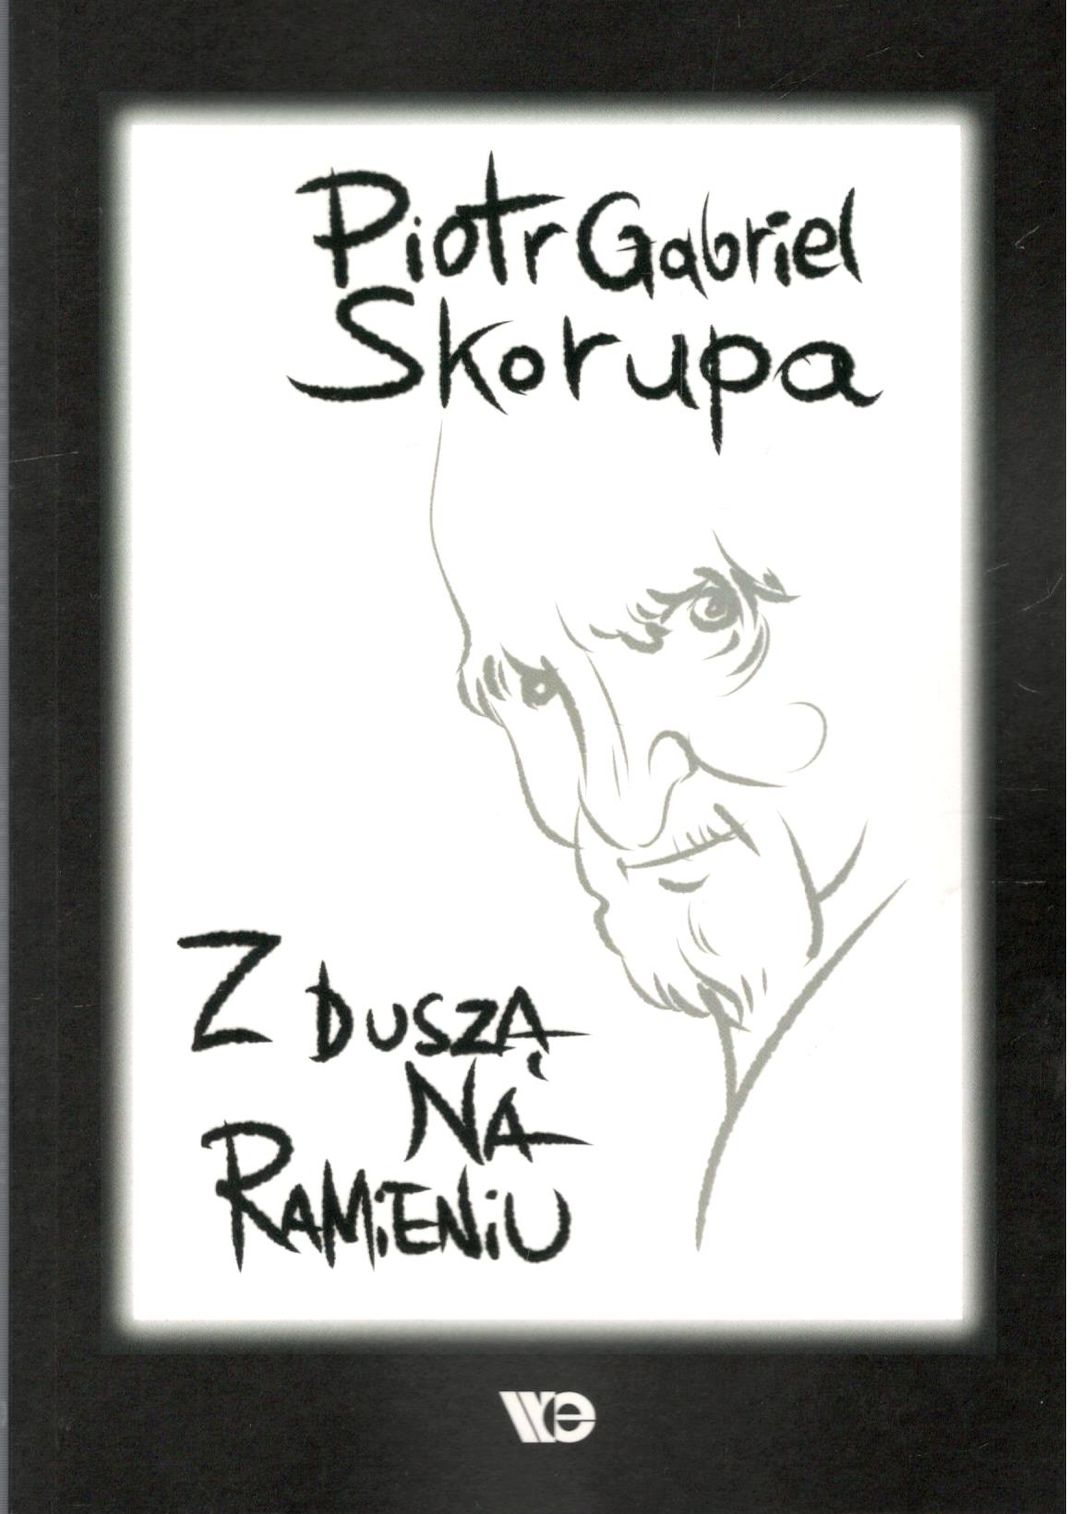 Piotr Gabriel
Skorupa
Z DUSZĄ
NA
RAMiENiU
We